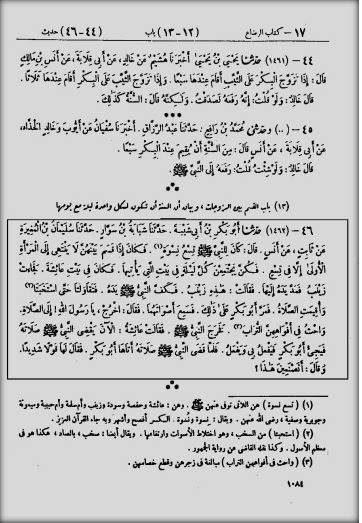 ١٧ – كتاب الرضاع (١٢–١٣) باب (٤٤–٤٦) حديث
٤٤ – (١٤٦١) حدثنا يَحْيَىٰ بْنُ يَحْيَىٰ. أَخْبَرَنَا هُشَيْمٌ عَنْ خَالِدٍ، عَنْ أَبِي قِلَابَةَ، عَنْ أَنَسِ بْنِ مَالِكٍ
قَالَ: إِذَا تَزَوَّجَ الْبِكْرَ عَلَى الثَّيِّبِ أَقَامَ عِنْدَهَا سَبْعًا. وَإِذَا تَزَوَّجَ الثَّيِّبَ عَلَى الْبِكْرِ أَقَامَ عِنْدَهَا ثَلَاثًا.
قَالَ خَالِدٌ: وَلَوْ قُلْتُ: إِنَّهُ رَفَعَهُ لَصَدَقْتُ. وَلَكِنَّهُ قَالَ: السُّنَّةُ كَذَلِكَ.
٤٥ – (..) وحدثني مُحَمَّدُ بْنُ رَافِعٍ. حَدَّثَنَا عَبْدُ الرَّزَّاقِ. أَخْبَرَنَا سُفْيَانُ عَنْ أَيُّوبَ وَخَالِدٍ الْحَذَّاءِ،
عَنْ أَبِي قِلَابَةَ، عَنْ أَنَسٍ قَالَ: مِنَ السُّنَّةِ أَنْ يُقِيمَ عِنْدَ الْبِكْرِ سَبْعًا.
قَالَ خَالِدٌ: وَلَوْ شِئْتُ قُلْتُ: رَفَعَهُ إِلَى النَّبِيِّ ﷺ.
(١٣) باب القسم بين الزوجات، وبيان أن السنة أن تكون لكل واحدة ليلة مع يومها
٤٦ – (١٤٦٢) حدثنا أَبُو بَكْرِ بْنُ أَبِي شَيْبَةَ. حَدَّثَنَا شَبَابَةُ بْنُ سَوَّارٍ. حَدَّثَنَا سُلَيْمَانُ بْنُ الْمُغِيرَةِ
عَنْ ثَابِتٍ، عَنْ أَنَسٍ. قَالَ: كَانَ لِلنَّبِيِّ ﷺ تِسْعُ نِسْوَةٍ(١). فَكَانَ إِذَا قَسَمَ بَيْنَهُنَّ لَا يَنْتَهِي إِلَى الْمَرْأَةِ
الْأُولَىٰ إِلَّا فِي تِسْعٍ. فَكُنَّ يَجْتَمِعْنَ كُلَّ لَيْلَةٍ فِي بَيْتِ الَّتِي يَأْتِيهَا. فَكَانَ فِي بَيْتِ عَائِشَةَ. فَجَاءَتْ
زَيْنَبُ. فَمَدَّ يَدَهُ إِلَيْهَا. فَقَالَتْ: هَذِهِ زَيْنَبُ. فَكَفَّ النَّبِيُّ ﷺ يَدَهُ. فَتَقَاوَلَتَا حَتَّى اسْتَخَبَتَا(٢)
وَأُقِيمَتِ الصَّلَاةُ. فَمَرَّ أَبُو بَكْرٍ عَلَى ذَلِكَ. فَسَمِعَ أَصْوَاتَهُمَا. فَقَالَ: اخْرُجْ، يَا رَسُولَ اللهِ! إِلَى الصَّلَاةِ.
وَاحْثُ فِي أَفْوَاهِهِنَّ التُّرَابَ(٣). فَخَرَجَ النَّبِيُّ ﷺ. فَقَالَتْ عَائِشَةُ: الْآنَ يَقْضِي النَّبِيُّ ﷺ صَلَاتَهُ
فَيَجِيءُ أَبُو بَكْرٍ فَيَفْعَلُ بِي وَيَفْعَلُ. فَلَمَّا قَضَى النَّبِيُّ ﷺ صَلَاتَهُ أَتَاهَا أَبُو بَكْرٍ. فَقَالَ لَهَا قَوْلًا شَدِيدًا.
وَقَالَ: أَتَصْنَعِينَ هَذَا؟
(١) (تسع نسوة) هن اللاتي توفي عنهن ﷺ. وهن: عائشة وحفصة وسودة وزينب وأم سلمة وأم حبيبة وميمونة
وجويرية وصفية، رضي الله عنهن. ويقال: نِسوة ونُسوة. الكسر أفصح وأشهر وبه جاء القرآن العزيز.
(٢) (استخبتا) من السخب، وهو اختلاط الأصوات وارتفاعها. ويقال أيضا: صخب، بالصاد، هكذا هو في
معظم الأصول. وكذا نقله القاضي عن رواية الجمهور.
(٣) (واحث في أفواههن التراب) مبالغة في زجرهن وقطع خصامهن.
١٠٨٤